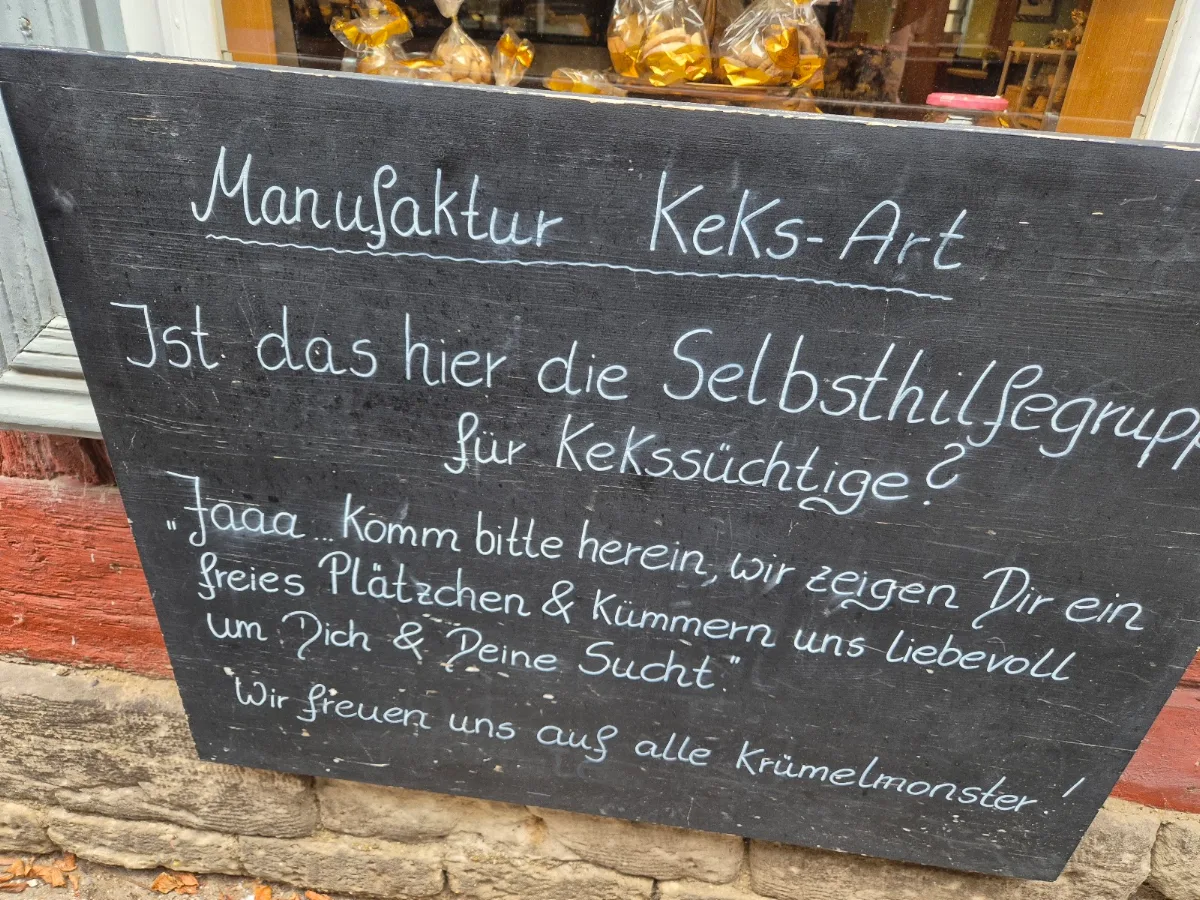 Manufaktur KeKs-Art
Ist das hier die Selbsthilfegrupp
für Kekssüchtige?
„Jaaa... Komm bitte herein, wir zeigen Dir ein
freies Plätzchen & Kümmern uns liebevoll
um Dich & Deine Sucht."
Wir freuen uns auf alle Krümelmonster!